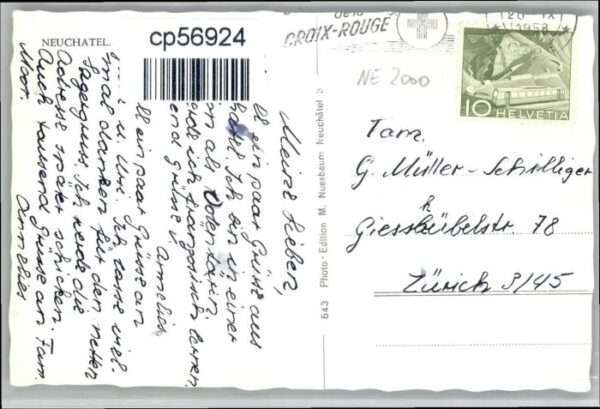 NEUCHATEL.
cp56924
CROIX-ROUGE
120 IX
1953
NE 2000
10 HELVETIA
Meine Lieben,
ein paar Grüsse aus
Ich bin in einer
als
ich französisch lernen.
end Grüsse v.
Annelies
ein paar Grüsse an
u. Urs. Ich lasse viel-
mal danken für den netten
Ich werde die
Adresse später schicken.
Auch tausend Grüsse an Fam.
Moor. Annelies
543 Photo-Edition M. Nussbaum Neuchâtel
Fam.
G. Müller-Schilliger
Giesshübelstr. 78
Zürich 3/45